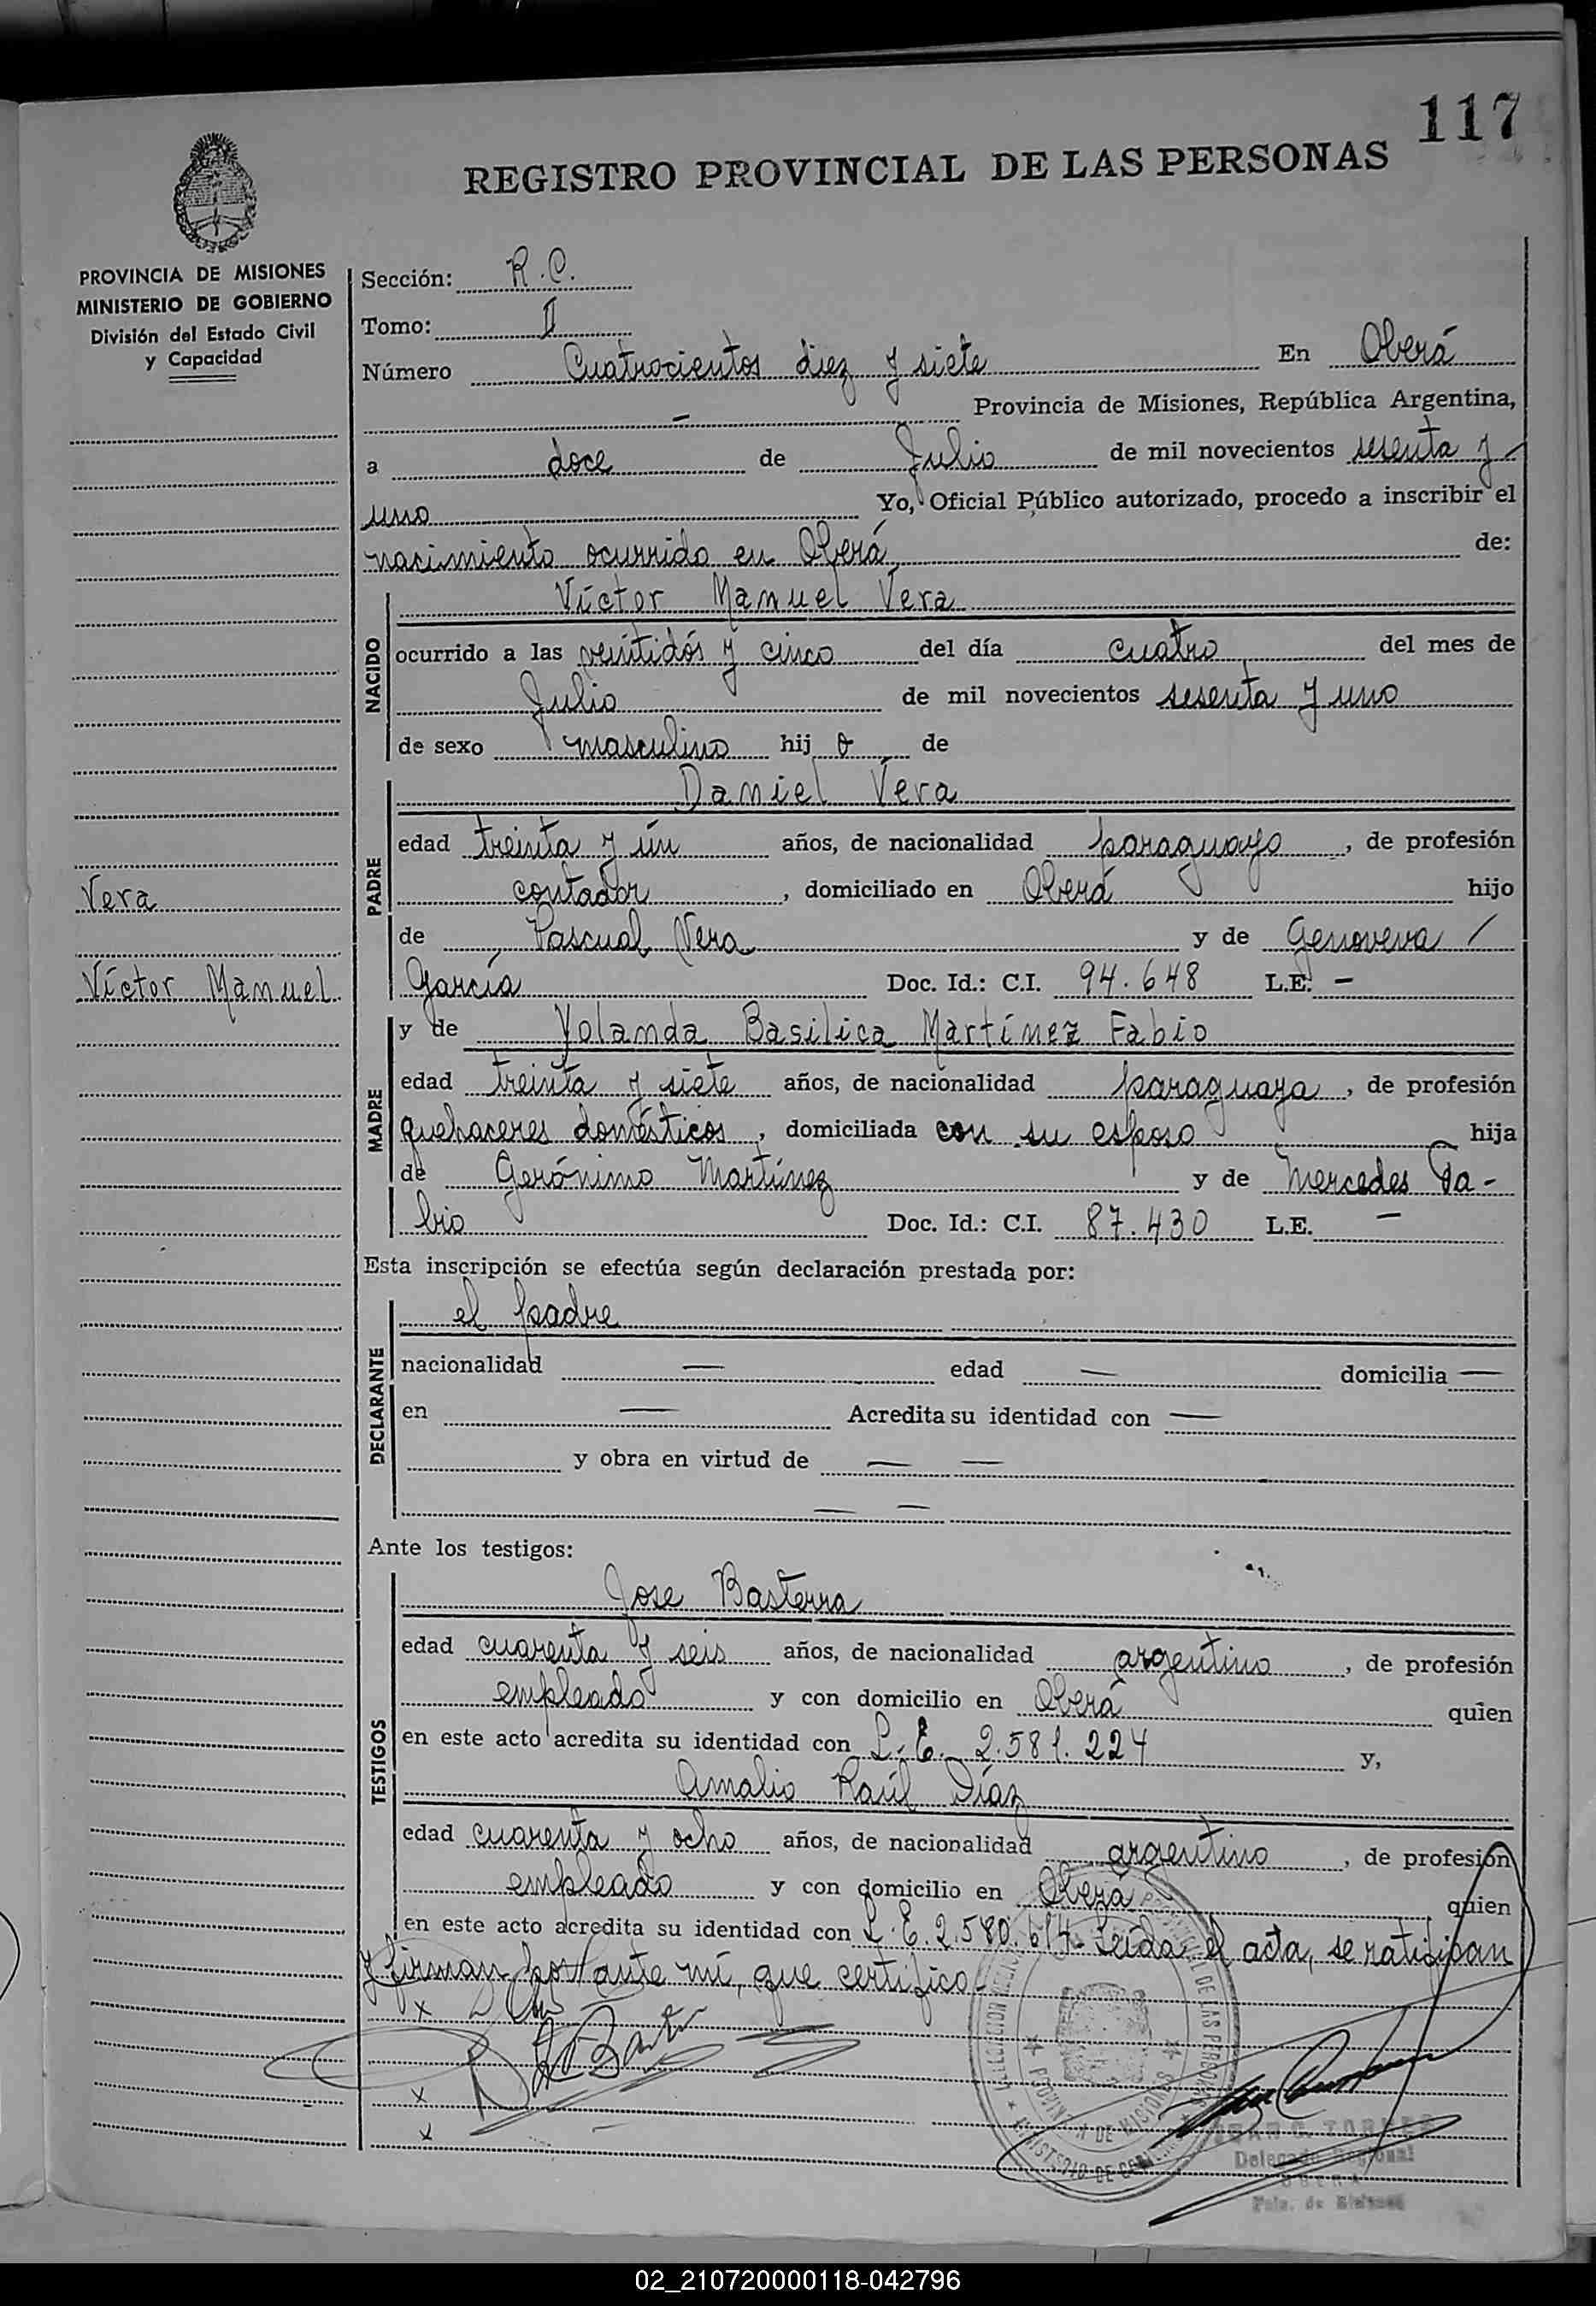 117
REGISTRO PROVINCIAL DE LAS PERSONAS
PROVINCIA DE MISIONES
MINISTERIO DE GOBIERNO
División del Estado Civil
y Capacidad
Vera
Víctor Manuel
Sección: R.C.
Tomo: II
Número Cuatrocientos diez y siete En Oberá
- Provincia de Misiones, República Argentina,
a doce de Julio de mil novecientos sesenta y
uno Yo, Oficial Público autorizado, procedo a inscribir el
nacimiento ocurrido en Oberá de:
NACIDO
Víctor Manuel Vera
ocurrido a las veintidós y cinco del día cuatro del mes de
Julio de mil novecientos sesenta y uno
de sexo masculino hijo de
PADRE
Daniel Vera
edad treinta y ún años, de nacionalidad paraguayo, de profesión
contador, domiciliado en Oberá hijo
de Pascual Vera y de Genoveva /
García Doc. Id.: C.I. 94.648 L.E. -
MADRE
y de Yolanda Basilica Martínez Fabio
edad treinta y siete años, de nacionalidad paraguaya, de profesión
quehaceres domésticos, domiciliada con su esposo hija
de Gerónimo Martínez y de Mercedes Fa-
bio Doc. Id.: C.I. 87.430 L.E. -
Esta inscripción se efectúa según declaración prestada por:
DECLARANTE
el padre
nacionalidad — edad — domicilia —
en — Acredita su identidad con —
y obra en virtud de — —
— —
Ante los testigos:
TESTIGOS
Jose Basterra
edad cuarenta y seis años, de nacionalidad argentino, de profesión
empleado y con domicilio en Oberá quien
en este acto acredita su identidad con L.E. 2.581.224 y,
Amalio Raúl Díaz
edad cuarenta y ocho años, de nacionalidad argentino, de profesión
empleado y con domicilio en Oberá quien
en este acto acredita su identidad con L.E. 2.580.614. Leída el acta, se ratifican
y firman por ante mí, que certifico.-
x
x
x
TORRES
Delegado Regional
Pcia. de Misiones
02_210720000118-042796